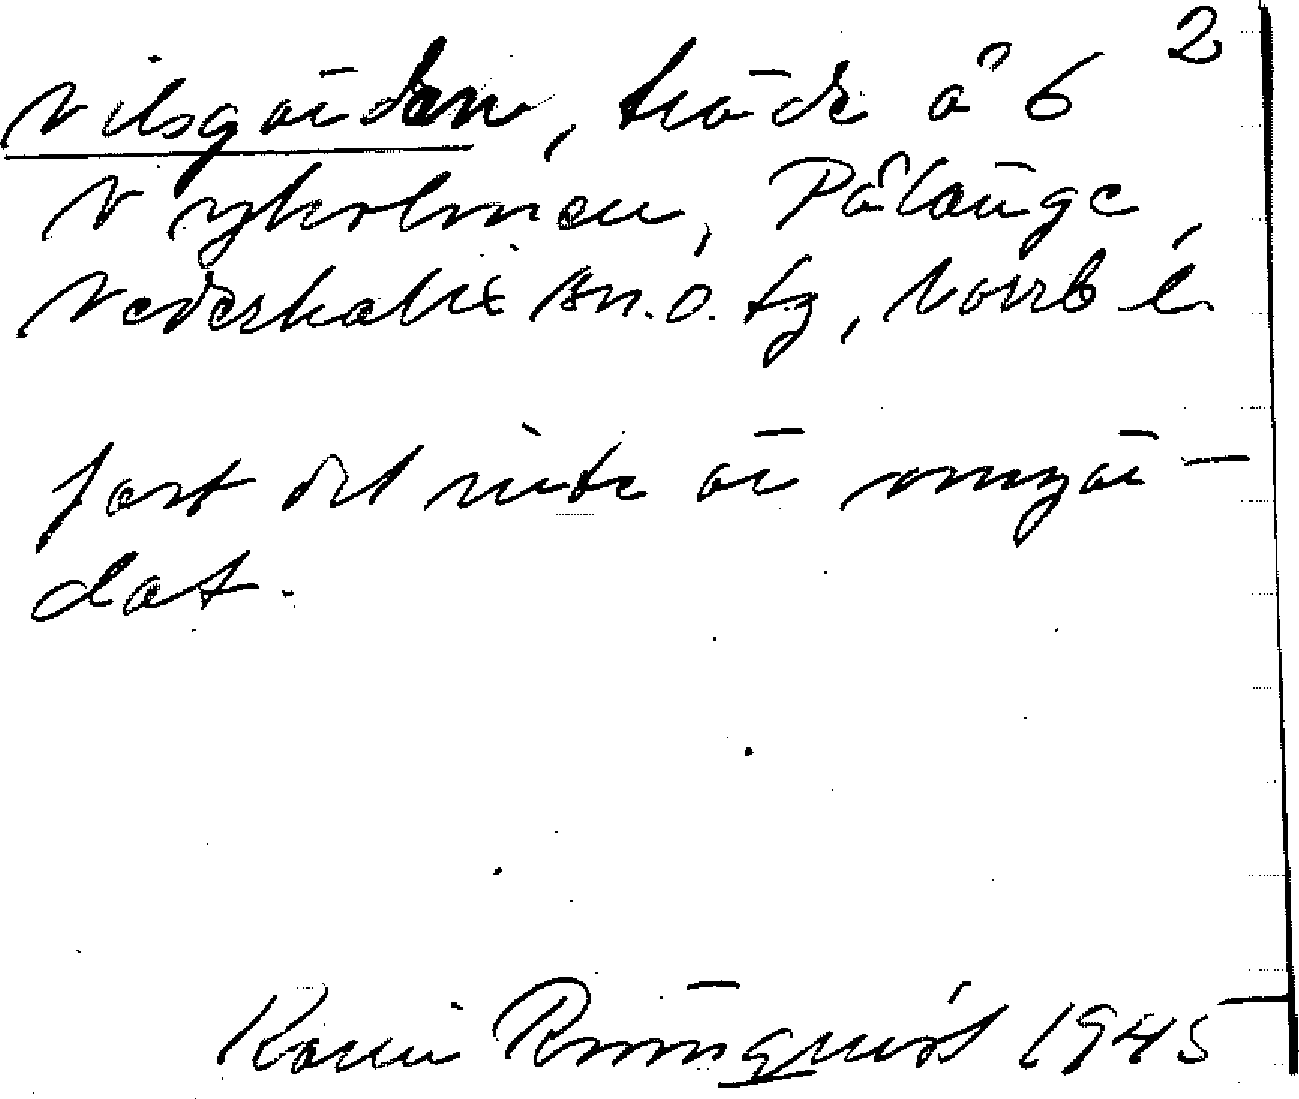 2
Nilsgärden, träde å 6
Nyholmen, Pålänge,
Nederkalix sn. o. tg, Norrb l.
fast det inte är ingär-
dat.
Karin Rönnquist 1945